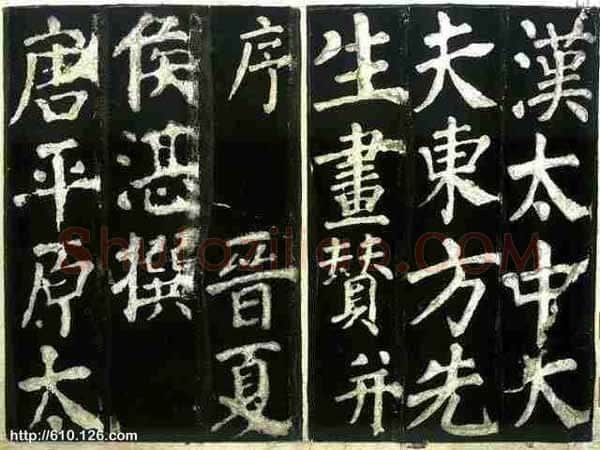 漢太中大
夫東方先
生畫贊并
序 晉夏
侯湛撰
唐平原太
Shufaziliao.COM
http://610.126.com